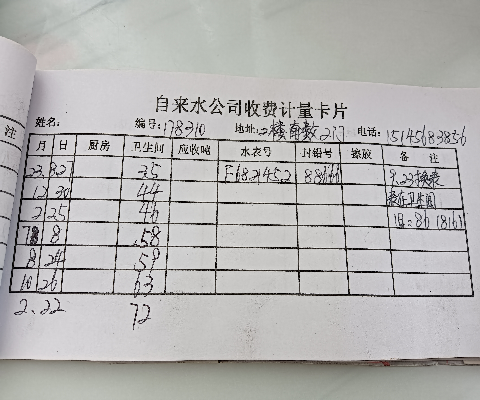 自来水公司收费计量卡片
姓名: 编号:178310 地址:2楼南数2门 电话:15145683856
月 日 厨房 卫生间 应收吨 水表号 封铅号 橡胶 备注
23.8.21 35 F6821452 88666 9.22换表
12 30 44 表在卫生间
2 25 46 旧:8618161
8 58
8 24 59
10 26 63
2.22 72
注